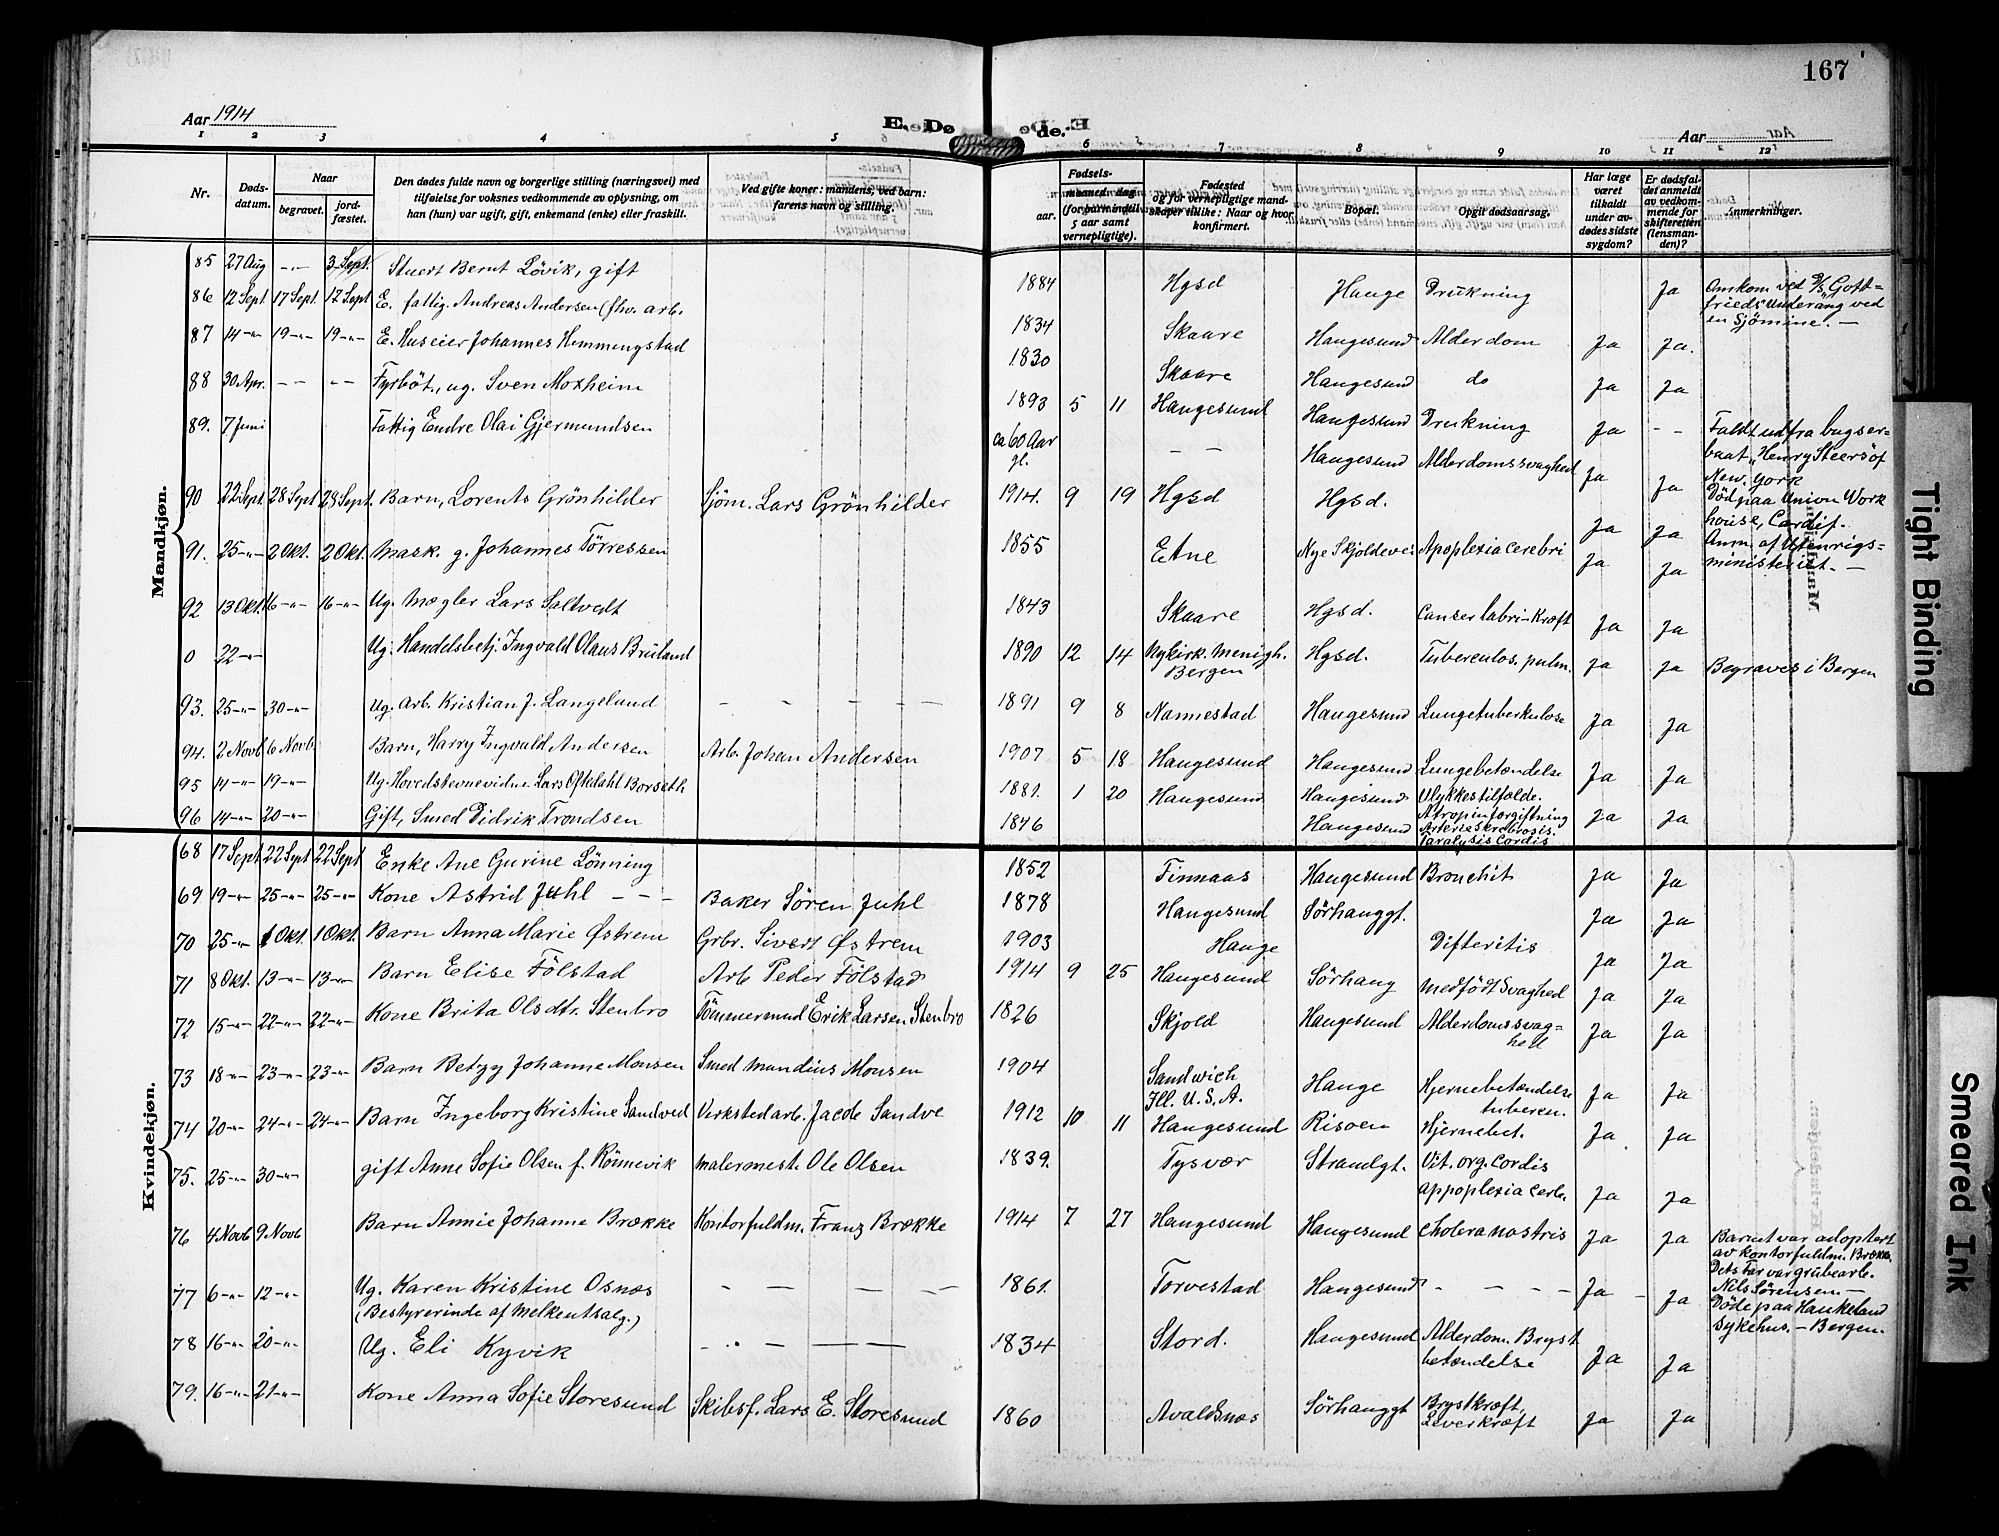 167
Aar 1914
E. Døde.
Aar
1 2 3 4 5 6 7 8 9 10 11 12
Nr.
Døds-
datum.
Naar
begravet.
jord-
fæstet.
Den dødes fulde navn og borgerlige stilling (næringsvei) med
tilføielse for voksnes vedkommende av oplysning, om
han (hun) var ugift, gift, enkemand (enke) eller fraskilt.
Ved gifte koner: mandens, ved barn:
farens navn og stilling.
Fødsels-
aar.
maaned. dag.
(for barn indtil
5 aar samt
vernepligtige).
Fødested
og for vernepligtige mand-
skaper tillike: Naar og hvor
konfirmert.
Bopæl.
Opgit dødsaarsag.
Har læge
været
tilkaldt
under av-
dødes sidste
sygdom?
Er dødsfal-
det anmeldt
av vedkom-
mende for
skifteretten
(lensman-
den)?
Anmerkninger.
Mandkjøn.
85 27 Aug -"- 3 Sept. Stuert Bernt Lövik, gift 1884 Hgsd Hauge Drukning Ja Omkom ved D/S "Gott-
fried's" Underang ved
en Sjömine. —
86 12 Sept 17 Sept. 17 Sept E. fattig. Andreas Andersen (fhv. arb. 1834 Skaare Haugesund Alderdom Ja Ja.
87 14-"- 19-"- 19-"- E. Huseier Johannes Hemmengstad 1830 Skaare Haugesund do Ja Ja
88 30 Apr. -- -- Fyrböt., ug. Sven Moxheim 1893 5 11 Haugesund Haugesund Drukning Ja -- Faldt ud fra bugser-
baat "Henry Steers" of
New. York
89. 7 Juni Fattig Endre Olai Gjermundsen ca 60 Aar
gl. -- Haugesund Alderdomssvaghed Ja Ja Död paa Union Work
house, Cardif.
Anm. af Utenrigs-
ministeriet. —
90 22 Sept. 28 Sept 28 Sept. Barn, Lorents Grönhilder Sjöm. Lars Grönhilder 1914. 9 19 Hgsd Hgsd. Ja Ja
91. 25-"- 2 Okt. 2 Okt Mask. g. Johannes Törressen 1855 Etne Nye Skjoldevei Apoplexia cerebri Ja Ja
92 13 Okt. 16-"- 16-"- Ug. Mægler Lars Saltvedt 1843 Skaare Hgsd. Canser labri-Kræft Ja Ja
0 22-"- Ug. Handelsbetj. Ingvald Olaus Bruland 1890 12 14 Nykirk. Menigh.
Bergen Hgsd. Tuberculos. pulm. Ja Ja Begraves i Bergen
93. 25-"- 30-"- Ug. Arb. Kristian J. Langeland - - - - - 1891 9 8 Nannestad Haugesund Lungetuberkulose Ja Ja
94. 2 Novb 6 Novb. Barn, Harry Ingvald Andersen Arb. Johan Andersen 1907 5 18 Haugesund Haugesund Lungebetændelse Ja Ja
95 14-"- 19-"- Ug. Hovedstevnevidne Lars Oftedahl Borseth 1881. 1 20 Haugesund Haugesund Ulykkestilfælde.
Atropinforgiftning Ja Ja
96 14-"- 20-"- Gift, Smed Didrik Trondsen 1846 Haugesund
Paralysis Cordis
Kvindekjøn.
68 17 Sept 22 Sept 22 Sept Enke Ane Gurine Lönning 1852 Finnaas Haugesund Bronchit Ja Ja
69 19-"- 25-"- 25-"- Kone Astrid Juhl - - - Baker Sören Juhl 1878 Haugesund Sörhauggt. Ja Ja
70 25-"- 1 Okt. 1 Okt. Barn Anna Marie Østrem Grbr. Sivert Østrem 1903 Hauge Difteritis Ja Ja
71 8 Okt. 13-"- 13-"- Barn Elise Fölstad Arb Peder Fölstad 1914 9 25 Haugesund Sörhaug Medfödt Svaghed Ja Ja
72 15-"- 22-"- 22-"- Kone Brita Olsdtr. Stenbro Tömmermand Erik Larsen Stenbro 1826 Skjold Haugesund Alderdomssvag-
hed Ja Ja
73 18-"- 23-"- 23-"- Barn Betzy Johanne Monsen Smed Mandius Monsen 1904 Sandwich
Ill. U.S.A. Hauge Hjernebetændelse
tuberen. Ja Ja
74 20-"- 24-"- 24-"- Barn Ingeborg Kristine Sandved Verkstedarb. Jacob Sandve 1912 10 11 Haugesund Risøen Hjernebet. Ja. Ja
75. 25-"- 30-"- gift Anne Sofie Olsen f. Rönnevik Malermest. Ole Olsen 1839. Tysvær Strandgt. Vit. org. Cordis
appoplexia cerb. Ja Ja
76 4 Novb 9. Novb Barn Annie Johanne Brække Kontorfuldm. Franz Brække 1914 7 27 Haugesund Haugesund Cholera nostris Ja Ja Barnet var adoptert
av kontorfuldm. Brække.
Dets Far var grubearb.
Nils Sörensen —
77 6-"- 12-"- Ug. Karen Kristine Osnæs
(Bestyrerinde af Melkeutsalg.) - - - - 1861. Torvestad Haugesund - - - - Ja - Ja Döde paa Haukeland
Sykehus. — Bergen.
78 16-"- 20-"- Ug. Eli Kyvik 1834 Stord. Haugesund Alderdom. Bryst
betændelse Ja Ja
79. 16-"- 21-"- Kone Anna Sofie Storesund Skibsf. Lars E. Storesund 1860 Avaldsnæs Sörhauggt Brystkræft,
Leverkræft Ja Ja
Tight Binding
Smeared Ink